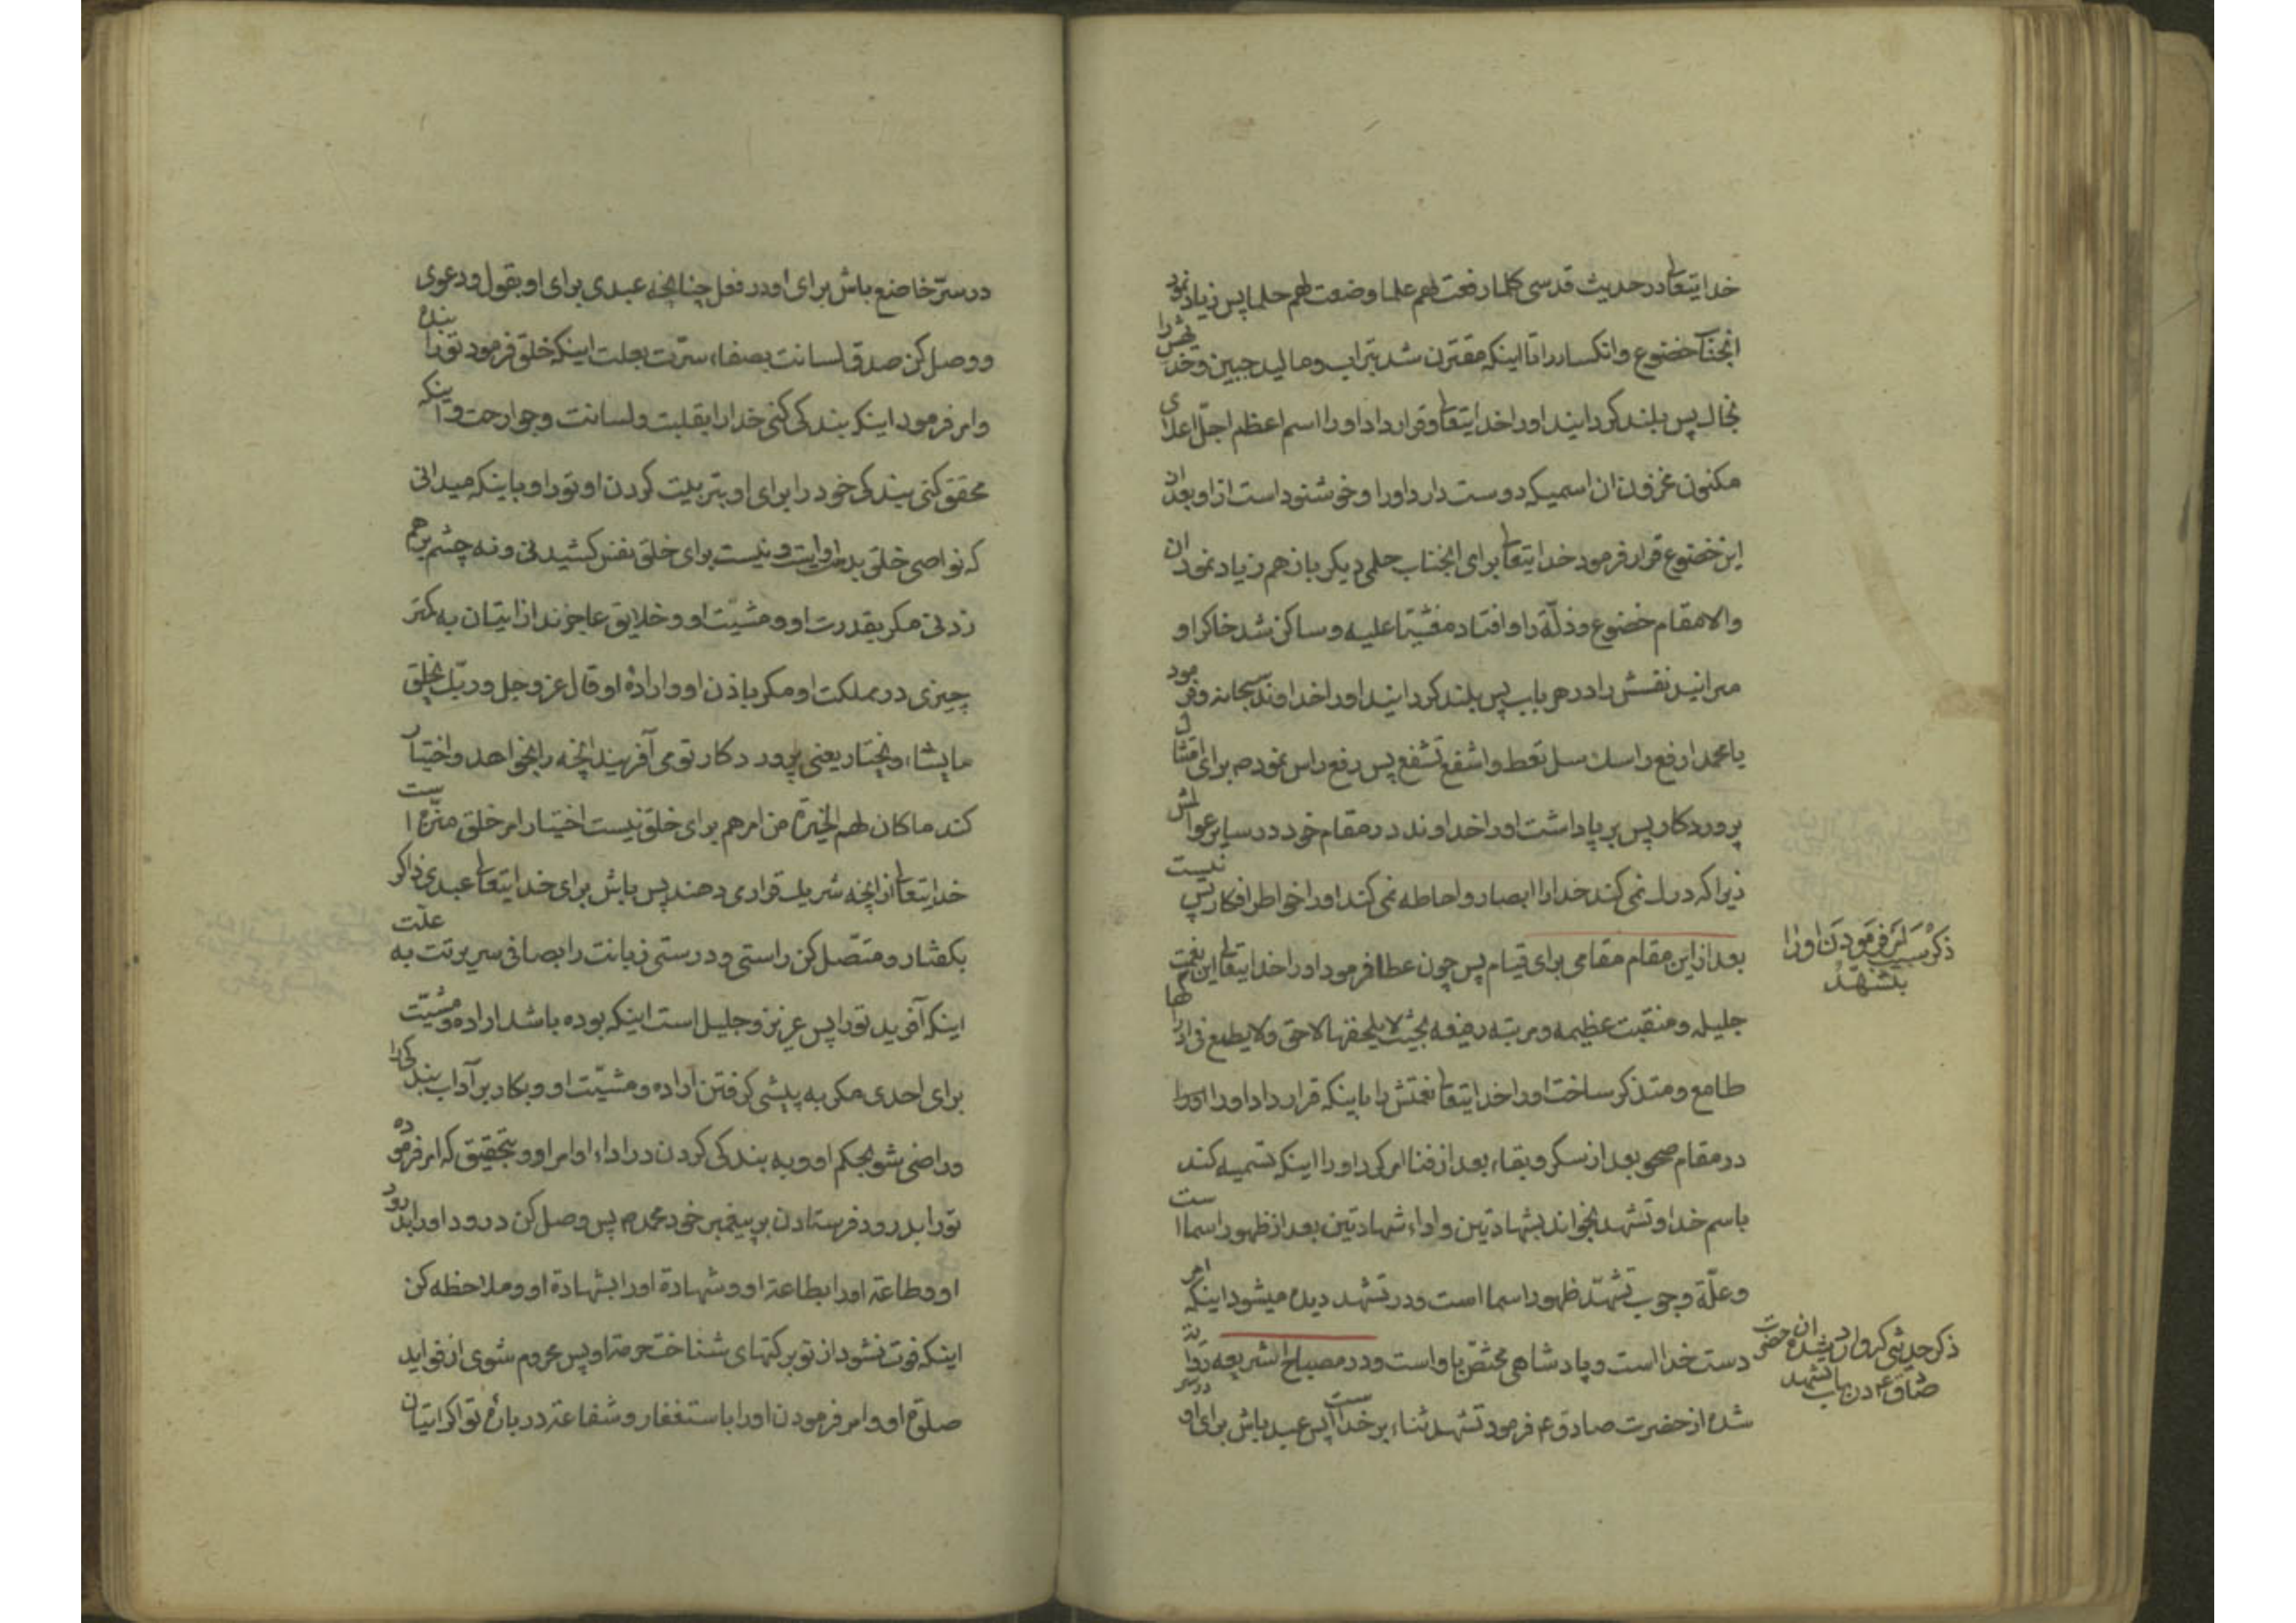 خدایتعالی در حدیث قدسی کلما رفعت لهم علما وضعت لهم حلما پس زیاد نمود
انجناب خضوع وانکسار را تا اینکه مقترن شد بتراب ومالید جبین وخد نفس را
بخاک پس بلند کردانید اورا خدایتعالی وقرار داد اورا اسم اعظم اجل اعلای
مکنون مخزون ان اسمیکه دوست دارد اورا وخوشنود است ازاو بعد از
این خضوع قرار فرمود خدایتعالی برای انجناب حلمی دیکر باز هم زیاد نمود ان
والامقام خضوع وذلّة را وافتاد مغشیّا علیه وساکن شد خاکرا و
میرانید نفسش را در هر باب پس بلند کردانید اورا خداوند سبحانه وفرمود
یا محمد ارفع راسک سل تعط واشفع تشفع پس رفع راس نمود ص برای امتثال
پروردکار پس برپا داشت اورا خداوند در مقام خود در سایر عوالمش
زیرا که درک نمی کند خدارا ابصار واحاطه نمی کند اورا خواطر افکار پس نیست
بعد از این مقام مقامی برای قیام پس چون عطا فرمود اورا خدایتعالی این نعمتهای
جلیله ومنقبت عظیمه ومرتبه رفیعه بحیث لا یلحقها لاحق ولا یطمع فی ادراکها
طامع ومتذکر ساخت اورا خدایتعالی نعمتش را باینکه قرار داد اورا
در مقام صحو بعد از سکر وبقاء بعد از فنا امر کرد اورا اینکه تسمیه کند
باسم خدا وتشهد بخواند بشهادتین واداء شهادتین بعد از ظهور اسما است
وعلّة وجوب تشهّد ظهور اسما است ودر تشهد دیده میشود اینکه امر
دست خدا است وپادشاهی مختصّ باو است ودر مصباح الشریعه روایة
شده از حضرت صادق ع فرمود تشهد ثناء بر خدا است پس عبد باش برای او در سر
ذکر سبب امر فرمودن اورا
بتشهّد
ذکر حدیثی که وارد شده از حضرت
صادق ع در باب تشهد
در سرّ خاضع باش برای او در فعل چنانچه عبدی برای او بقول ودعوی
ووصل کن صدق لسانت بصفاء سرّت بعلت اینکه خلق فرمود تورا بنده
وامر فرمود اینکه بندکی کنی خدارا بقلبت ولسانت وجوارحت واینکه
محقق کنی بندکی خود را برای او بتربیت کردن او تورا وباینکه میدانی
که نواصی خلق بدست او است ونیست برای خلق نفس کشیدنی ونه چشم برهم
زدنی مکر بقدرت او ومشیّت او وخلایق عاجزند از اتیان به کمتر
چیزی در مملکت او مکر باذن او واراده او قال عز وجل وربّک یخلق
ما یشاء ویختار یعنی پروردکار تو می آفریند انچه را بخواهد واختیار
کند ما کان لهم الخیرة من امرهم برای خلق نیست اختیار امر خلق منزّه است
خدایتعالی از انچه شریک قرار می دهند پس باش برای خدایتعالی عبدی ذاکر
بکفتار ومتّصل کن راستی ودرستی زبانت را بصافی سریرتت به علّت
اینکه آفرید تورا پس عزیز وجلیل است اینکه بوده باشد اراده ومشیّت
برای احدی مکر به پیشی کرفتن اراده ومشیّت او وبکار بر آداب بندکی را
وراضی شو بحکم او وبه بندکی کردن در اداء اوامر او وبتحقیق که امر فرموده
تورا بدرود فرستادن بر پیغمبر خود محمد ص پس وصل کن درود اورا بدرود
او وطاعة اورا بطاعة او وشهادة اورا بشهادة او وملاحظه کن
اینکه فوت نشود از تو برکتهای شناخت حرمة او پس محروم شوی از فواید
صلوة او وامر فرمودن اورا باستغفار وشفاعة در باره تو اکر اتیان